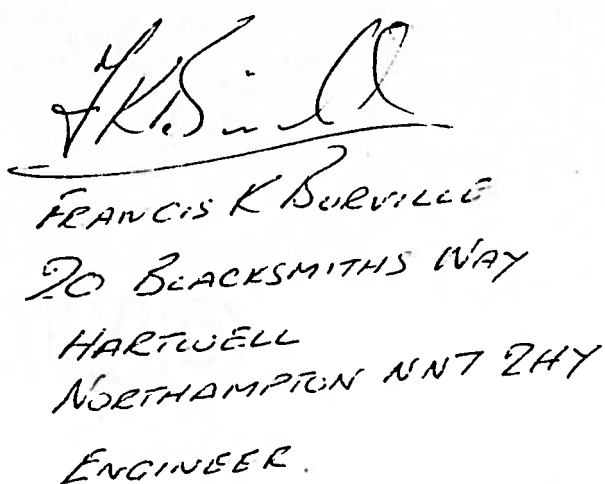 F K Burville
FRANCIS K BURVILLE
20 BLACKSMITHS WAY
HARTWELL
NORTHAMPTON NN7 2HY
ENGINEER.